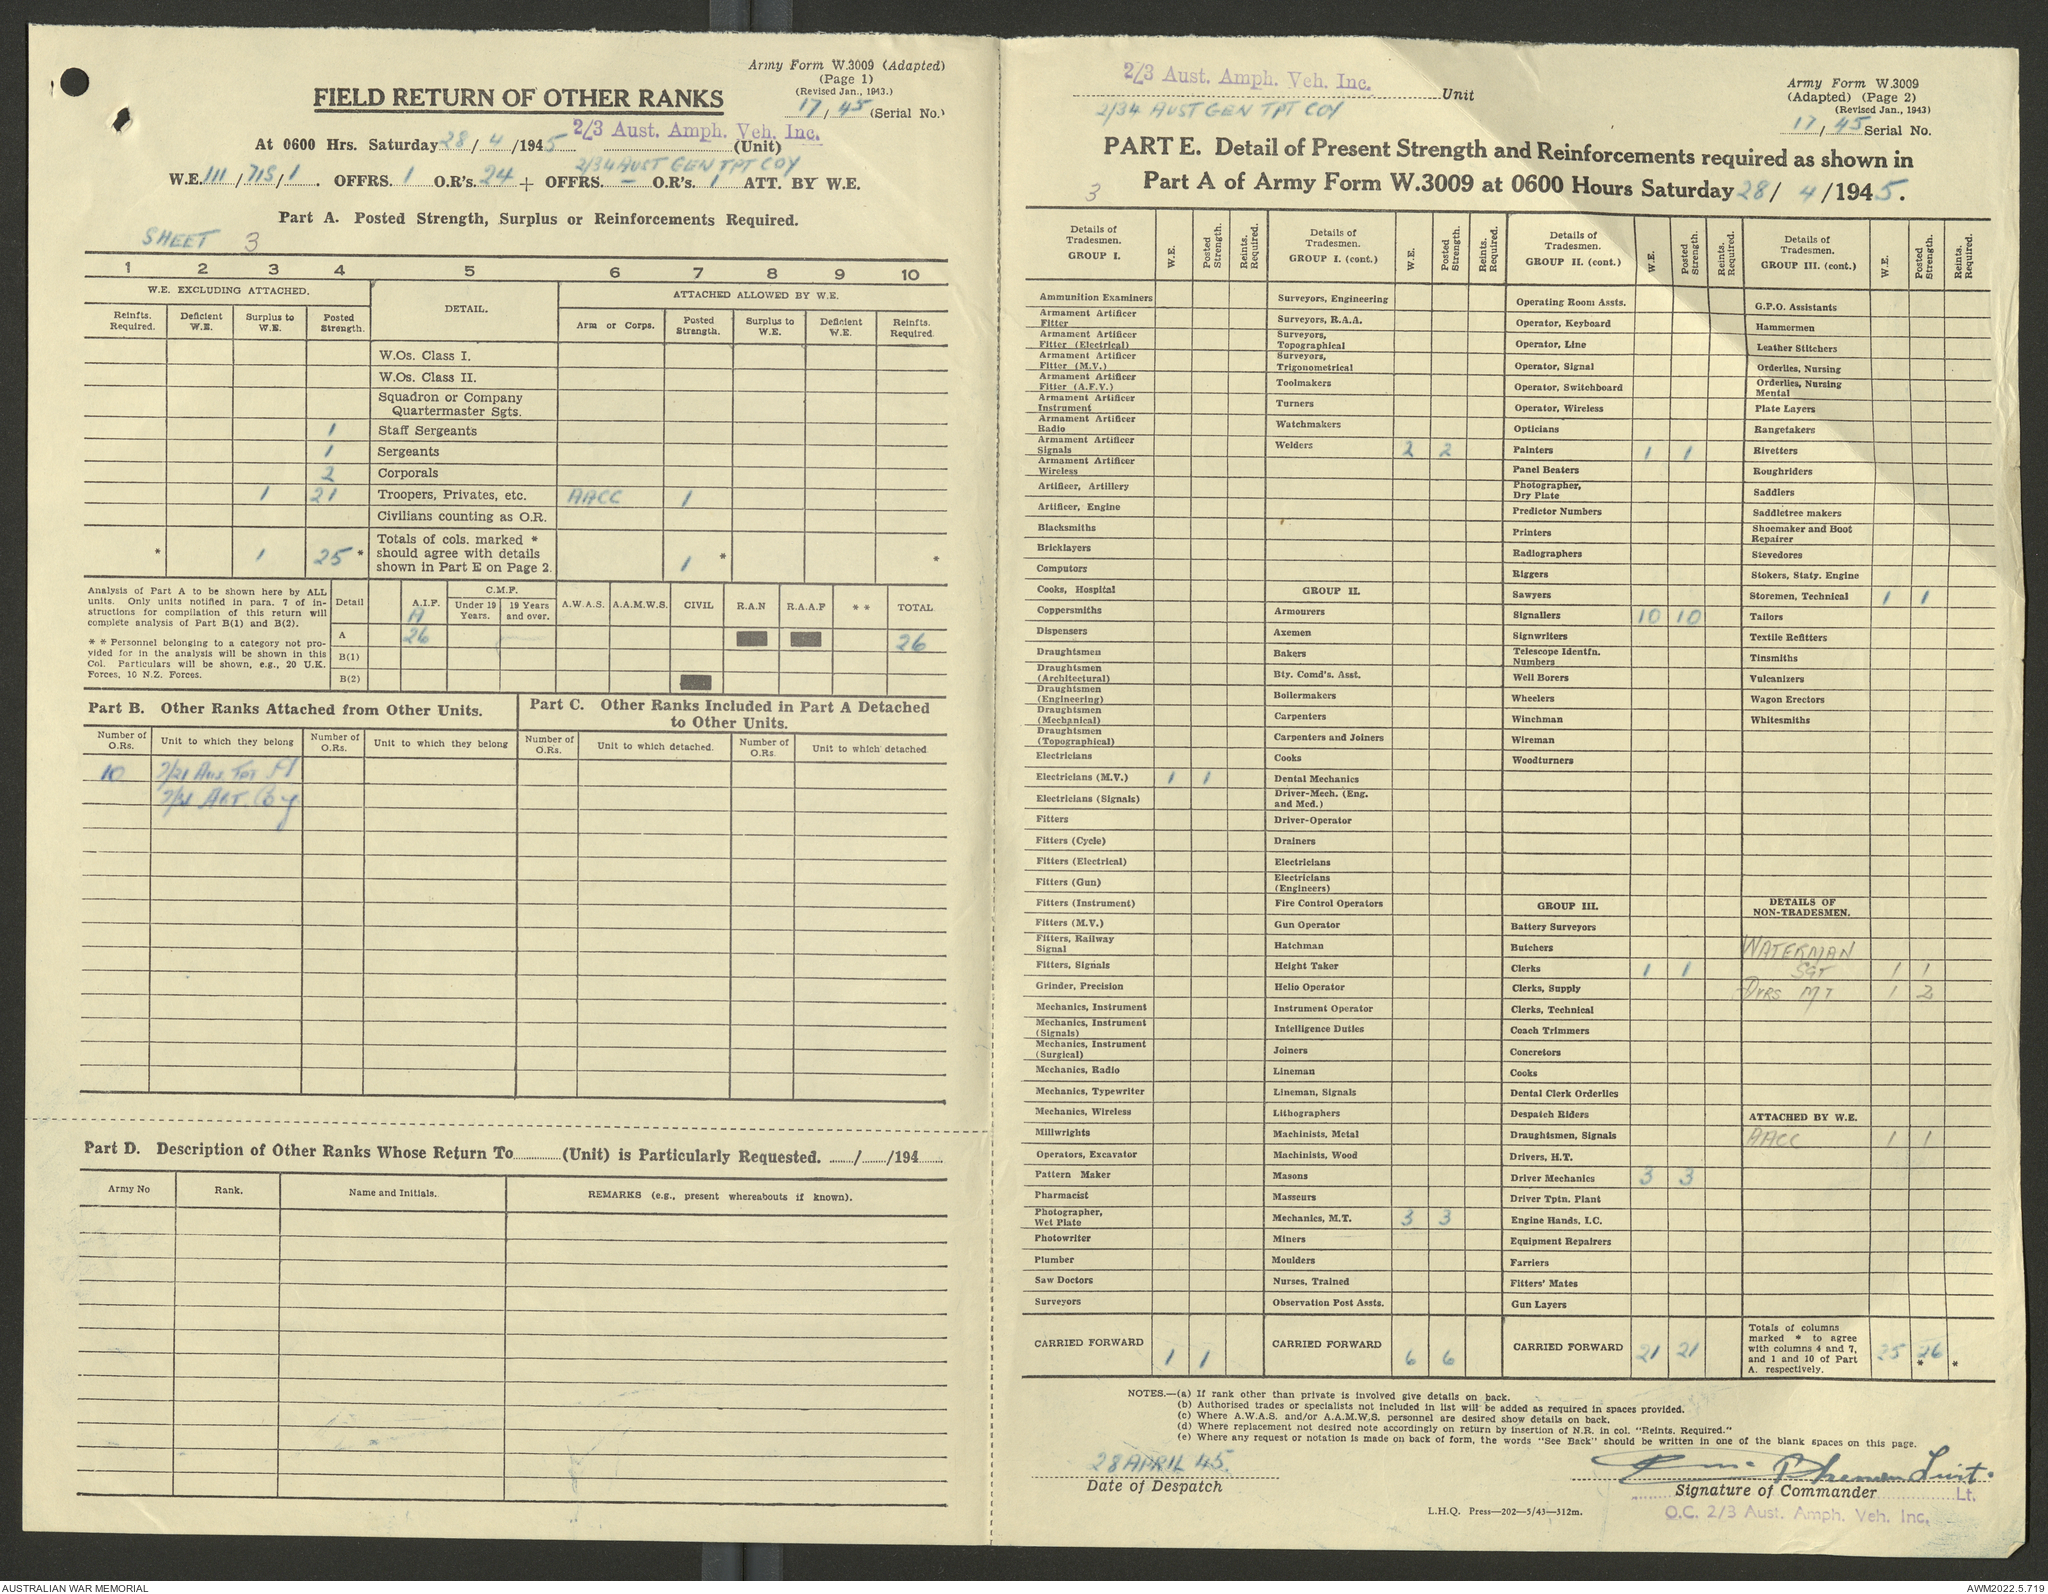 Army Form W.3009 (Adapted)
(Page 1)
(Revised Jan., 1943.)
17/45 (Serial No.)
FIELD RETURN OF OTHER RANKS
At 0600 Hrs. Saturday 28/4/1945 2/3 Aust. Amph. Veh. Inc. (Unit)
2/34 AUST GEN TPT COY
W.E. 111/715/1. OFFRS. 1 O.R's. 24 + OFFRS. – O.R's. 1 ATT. BY W.E.
Part A. Posted Strength, Surplus or Reinforcements Required.
SHEET 3
1 2 3 4 5 6 7 8 9 10
W.E. EXCLUDING ATTACHED. DETAIL. ATTACHED ALLOWED BY W.E.
Reinfts. Required. Deficient W.E. Surplus to W.E. Posted Strength. Arm or Corps. Posted Strength. Surplus to W.E. Deficient W.E. Reinfts. Required.
W.Os. Class I.
W.Os. Class II.
Squadron or Company
Quartermaster Sgts.
1 Staff Sergeants
1 Sergeants
2 Corporals
1 21 Troopers, Privates, etc. AACC 1
Civilians counting as O.R.
Totals of cols. marked *
should agree with details
shown in Part E on Page 2.
* 1 25 * 1 * *
Analysis of Part A to be shown here by ALL
units. Only units notified in para. 7 of in-
structions for compilation of this return will
complete analysis of Part B(1) and B(2).
* * Personnel belonging to a category not pro-
vided for in the analysis will be shown in this
Col. Particulars will be shown, e.g., 20 U.K.
Forces, 10 N.Z. Forces.
Detail A.I.F. C.M.F. Under 19 Years. 19 Years and over. A.W.A.S. A.A.M.W.S. CIVIL R.A.N R.A.A.F * * TOTAL
A
A 26 26
B(1)
B(2)
Part B. Other Ranks Attached from Other Units.
Part C. Other Ranks Included in Part A Detached
to Other Units.
Number of O.Rs. Unit to which they belong Number of O.Rs. Unit to which they belong Number of O.Rs. Unit to which detached. Number of O.Rs. Unit to which detached
10 Tpt
Part D. Description of Other Ranks Whose Return To (Unit) is Particularly Requested. / /194
Army No Rank. Name and Initials. REMARKS (e.g., present whereabouts if known).
2/3 Aust. Amph. Veh. Inc. Unit
2/34 AUST GEN TPT COY
Army Form W.3009
(Adapted) (Page 2)
(Revised Jan., 1943)
17/45 Serial No.
PART E. Detail of Present Strength and Reinforcements required as shown in
Part A of Army Form W.3009 at 0600 Hours Saturday 28/4/1945.
3
Details of Tradesmen. GROUP I. W.E. Posted Strength. Reints. Required.
Ammunition Examiners
Armament Artificer Fitter
Armament Artificer Fitter (Electrical)
Armament Artificer Fitter (M.V.)
Armament Artificer Fitter (A.F.V.)
Armament Artificer Instrument
Armament Artificer Radio
Armament Artificer Signals
Armament Artificer Wireless
Artificer, Artillery
Artificer, Engine
Blacksmiths
Bricklayers
Computors
Cooks, Hospital
Coppersmiths
Dispensers
Draughtsmen
Draughtsmen (Architectural)
Draughtsmen (Engineering)
Draughtsmen (Mechanical)
Draughtsmen (Topographical)
Electricians
Electricians (M.V.) 1 1
Electricians (Signals)
Fitters
Fitters (Cycle)
Fitters (Electrical)
Fitters (Gun)
Fitters (Instrument)
Fitters (M.V.)
Fitters, Railway Signal
Fitters, Signals
Grinder, Precision
Mechanics, Instrument
Mechanics, Instrument (Signals)
Mechanics, Instrument (Surgical)
Mechanics, Radio
Mechanics, Typewriter
Mechanics, Wireless
Millwrights
Operators, Excavator
Pattern Maker
Pharmacist
Photographer, Wet Plate
Photowriter
Plumber
Saw Doctors
Surveyors
CARRIED FORWARD 1 1
Details of Tradesmen. GROUP I. (cont.) W.E. Posted Strength. Reints. Required.
Surveyors, Engineering
Surveyors, R.A.A.
Surveyors, Topographical
Surveyors, Trigonometrical
Toolmakers
Turners
Watchmakers
Welders 2 2
GROUP II.
Armourers
Axemen
Bakers
Bty. Comd's. Asst.
Boilermakers
Carpenters
Carpenters and Joiners
Cooks
Dental Mechanics
Driver-Mech. (Eng. and Mcd.)
Driver-Operator
Drainers
Electricians
Electricians (Engineers)
Fire Control Operators
Gun Operator
Hatchman
Height Taker
Helio Operator
Instrument Operator
Intelligence Duties
Joiners
Lineman
Lineman, Signals
Lithographers
Machinists, Metal
Machinists, Wood
Masons
Masseurs
Mechanics, M.T. 3 3
Miners
Moulders
Nurses, Trained
Observation Post Assts.
CARRIED FORWARD 6 6
Details of Tradesmen. GROUP II. (cont.) W.E. Posted Strength. Reints. Required.
Operating Room Assts.
Operator, Keyboard
Operator, Line
Operator, Signal
Operator, Switchboard
Operator, Wireless
Opticians
Painters 1 1
Panel Beaters
Photographer, Dry Plate
Predictor Numbers
Printers
Radiographers
Riggers
Sawyers
Signallers 10 10
Signwriters
Telescope Identfn. Numbers
Well Borers
Wheelers
Winchman
Wireman
Woodturners
GROUP III.
Battery Surveyors
Butchers
Clerks 1 1
Clerks, Supply
Clerks, Technical
Coach Trimmers
Concretors
Cooks
Dental Clerk Orderlies
Despatch Riders
Draughtsmen, Signals
Drivers, H.T.
Driver Mechanics 3 3
Driver Tptn. Plant
Engine Hands, I.C.
Equipment Repairers
Farriers
Fitters' Mates
Gun Layers
CARRIED FORWARD 21 21
Details of Tradesmen. GROUP III. (cont.) W.E. Posted Strength. Reints. Required.
G.P.O. Assistants
Hammermen
Leather Stitchers
Orderlies, Nursing
Orderlies, Nursing Mental
Plate Layers
Rangetakers
Rivetters
Roughriders
Saddlers
Saddletree makers
Shoemaker and Boot Repairer
Stevedores
Stokers, Staty. Engine
Storemen, Technical 1 1
Tailors
Textile Refitters
Tinsmiths
Vulcanizers
Wagon Erectors
Whitesmiths
DETAILS OF
NON-TRADESMEN.
WATERMAN
SGT 1 1
DVRS MT 1 2
ATTACHED BY W.E.
AACC 1 1
Totals of columns
marked * to agree
with columns 4 and 7,
and 1 and 10 of Part
A. respectively. 25 26 * *
NOTES.—(a) If rank other than private is involved give details on back.
(b) Authorised trades or specialists not included in list will be added as required in spaces provided.
(c) Where A.W.A.S. and/or A.A.M.W.S. personnel are desired show details on back.
(d) Where replacement not desired note accordingly on return by insertion of N.R. in col. "Reints. Required."
(e) Where any request or notation is made on back of form, the words "See Back" should be written in one of the blank spaces on this page.
28 APRIL 45.
Date of Despatch
Signature of Commander Lt.
O.C. 2/3 Aust. Amph. Veh. Inc.
L.H.Q. Press—202—5/43—312m.
AUSTRALIAN WAR MEMORIAL
AWM2022.5.719